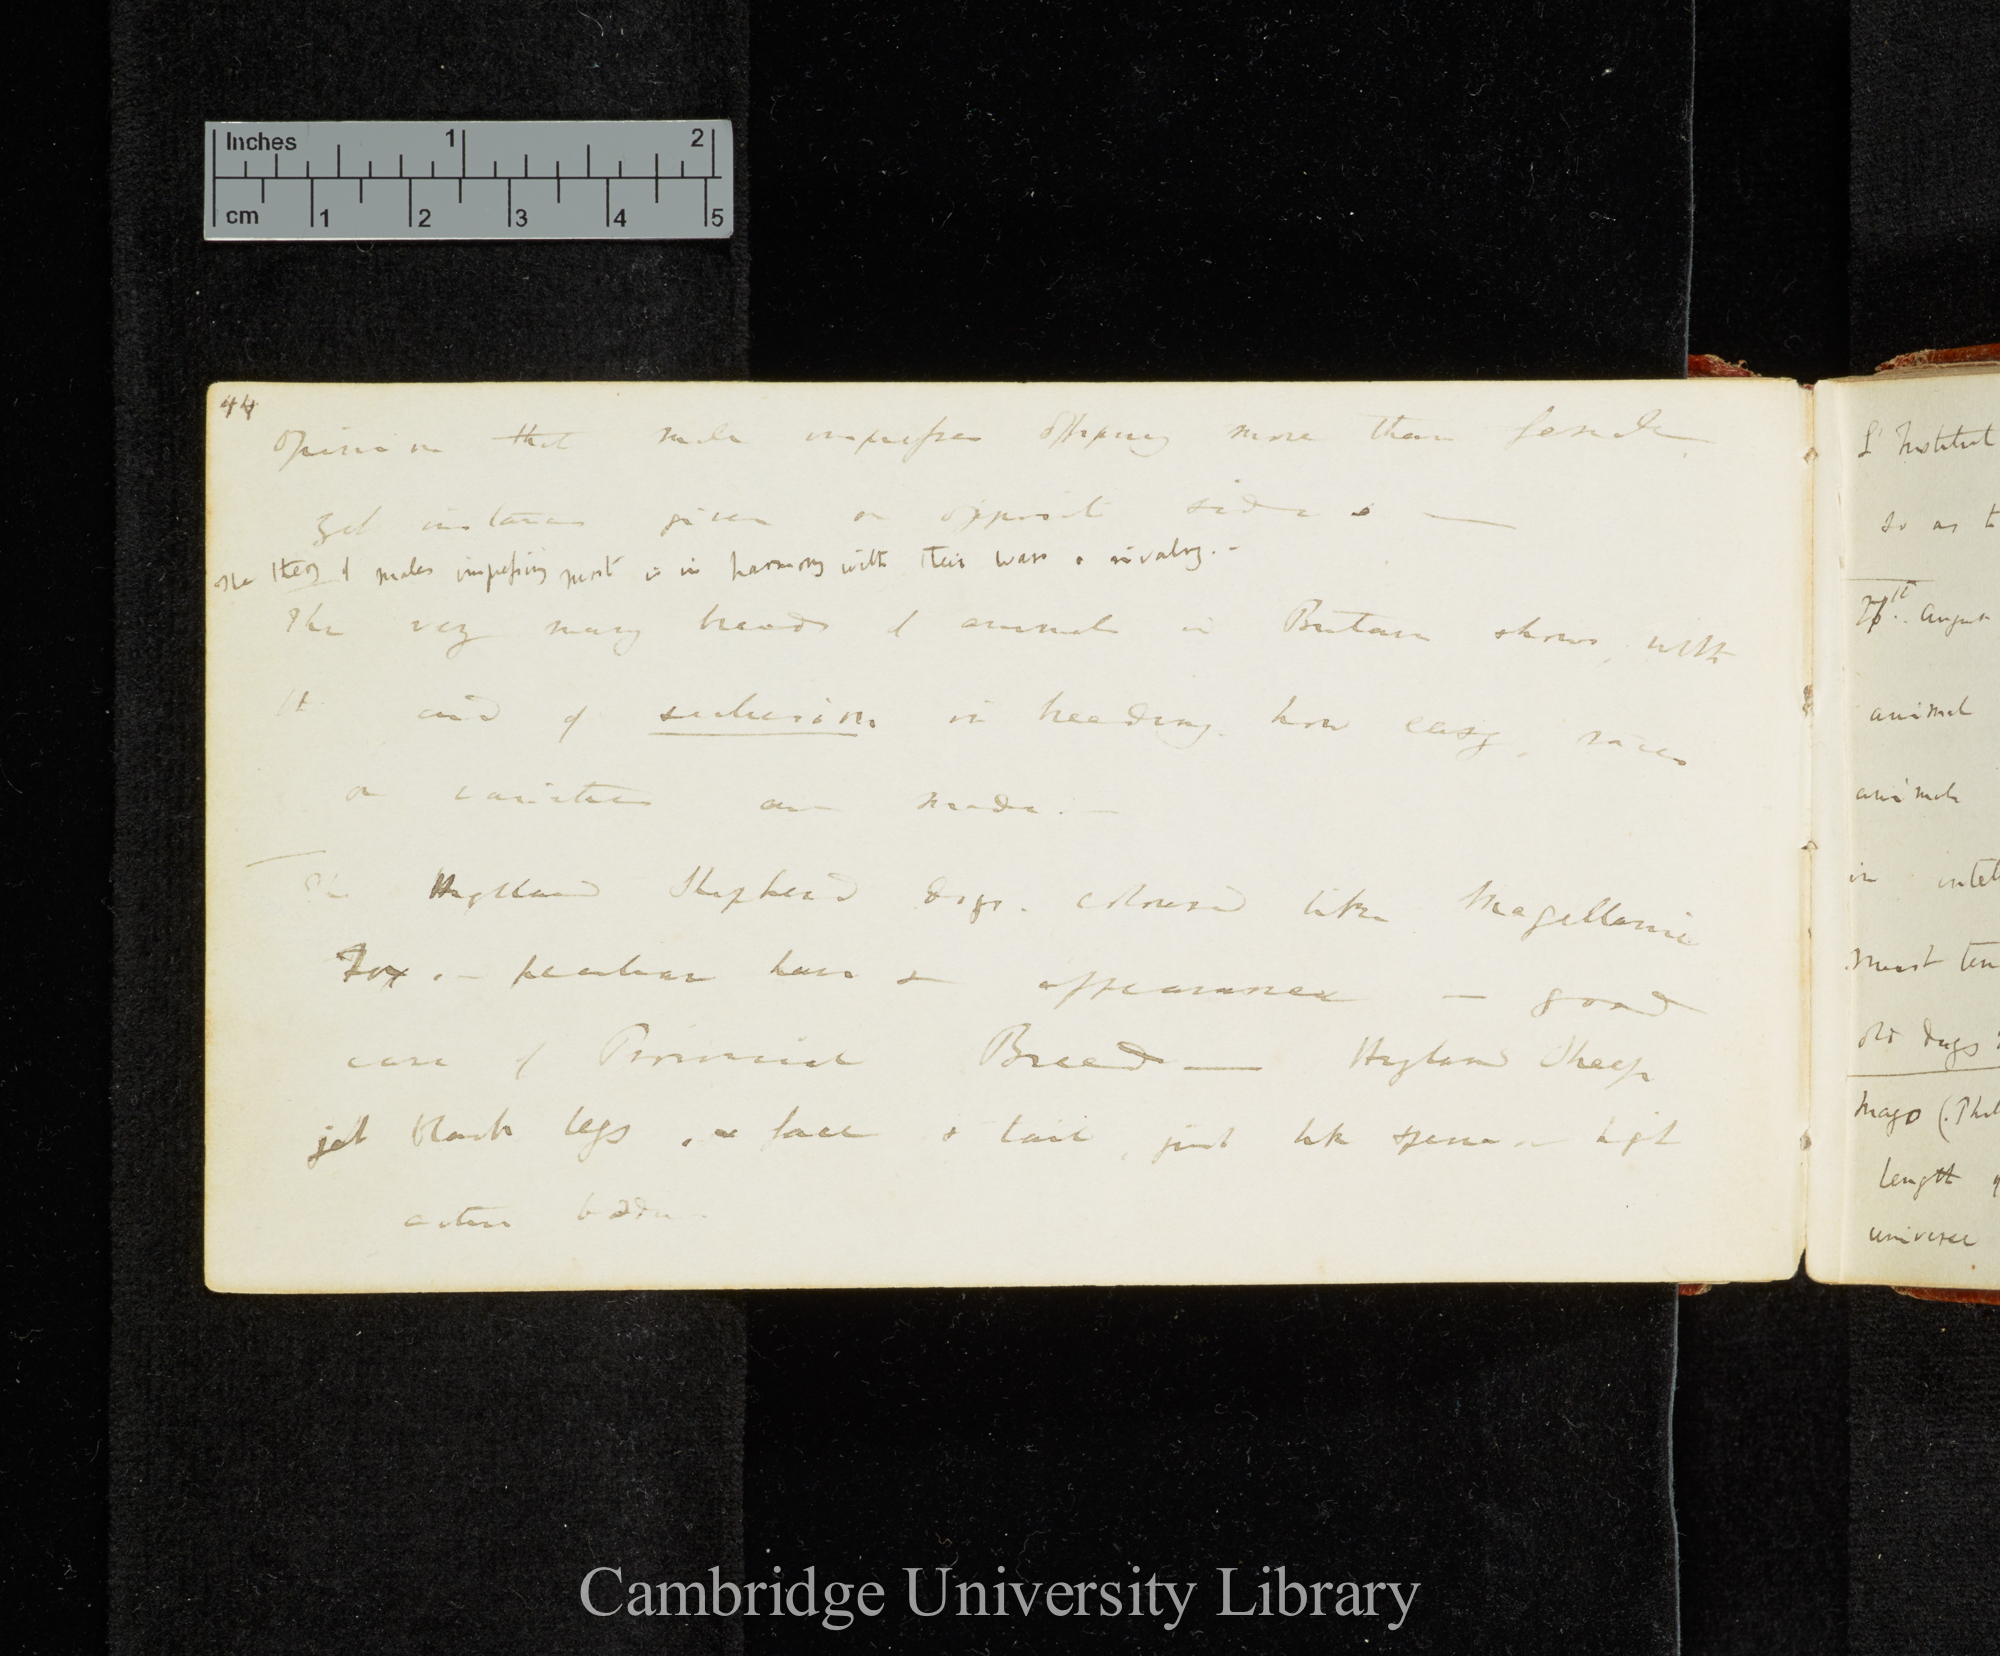 Inches 1 2
cm 1 2 3 4 5
44
opinion that male impresses offspring more than female
yet instances given on opposit sides —
The theory of males impressing most is in harmony with their wars & rivalry. —
The very many breeds of animals in Britain shows, with
the aid of seclusion in breeding how easy, races
or varieties are made. —
The Highland Shepherd dogs. coloured like Magellanic
Fox. — peculiar hair & appearance — good
case of Provincial Breed — Highland Sheep
jet black legs, & face & tail, just like species high
active bodies
L'Institut
so as t
16th. August
animal
animals
in intel
must ten
old dogs
Mayo (. Phil
length
universe
Cambridge University Library